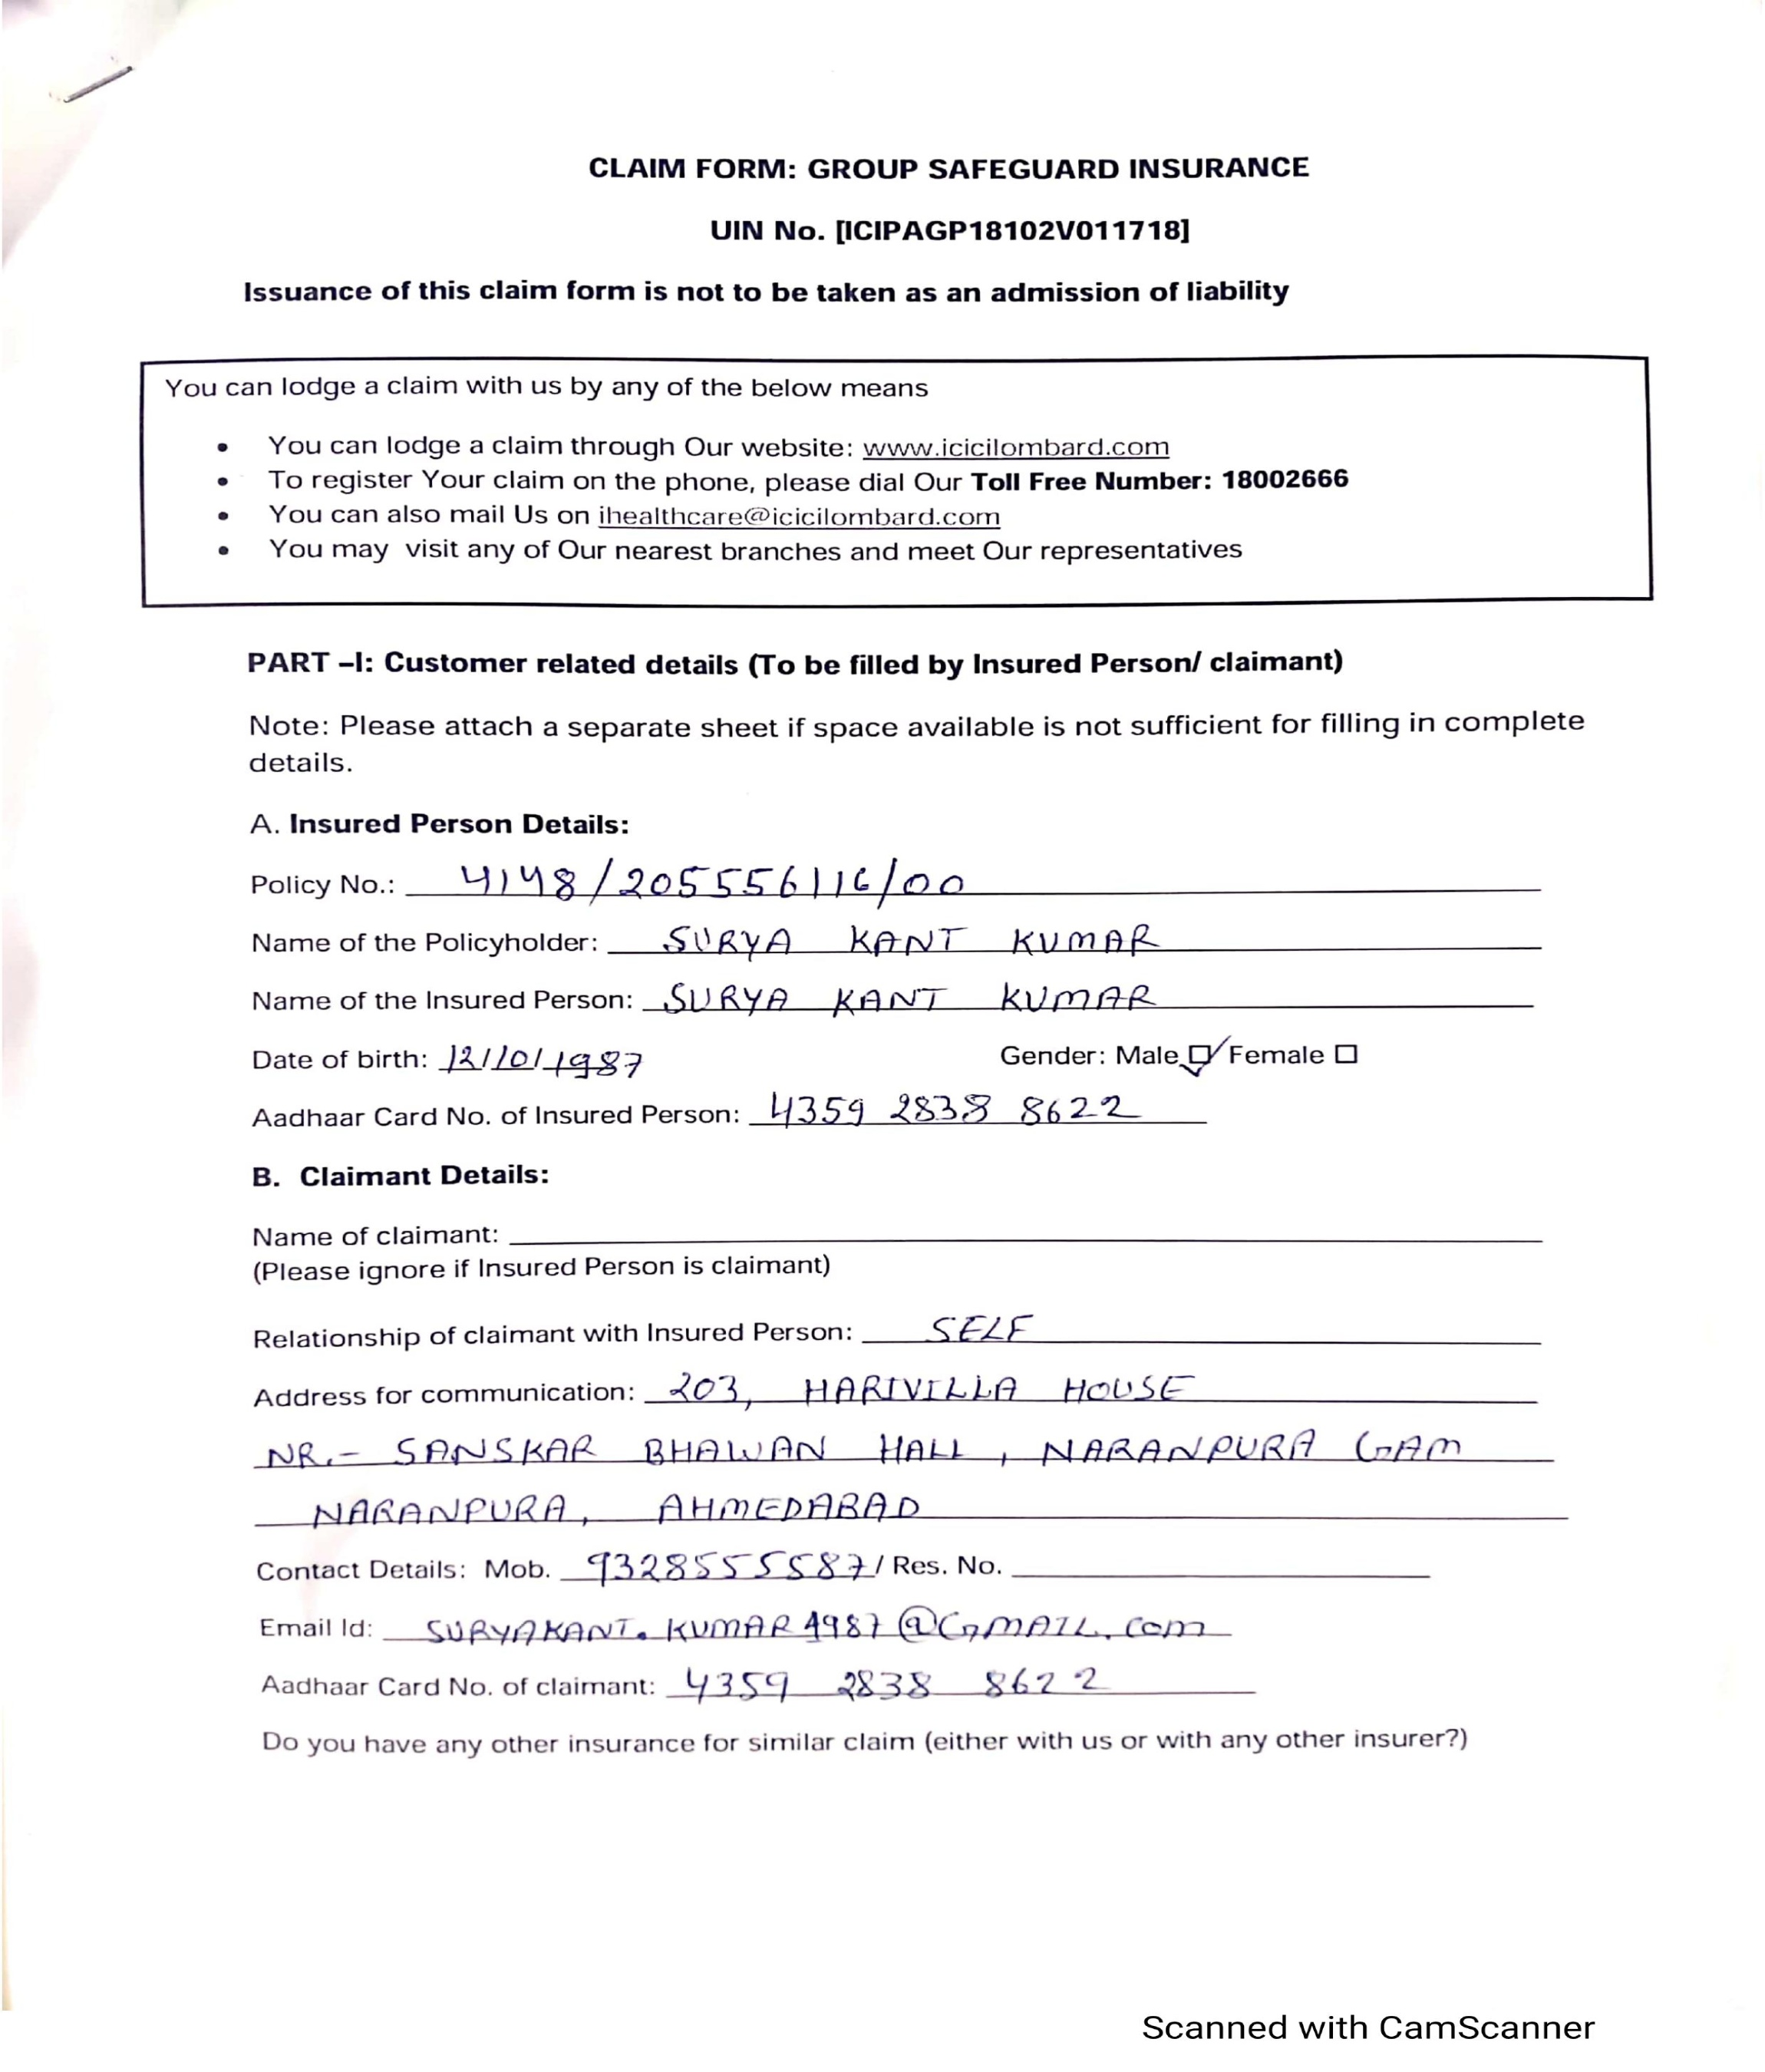 CLAIM FORM: GROUP SAFEGUARD INSURANCE
UIN No. [ICIPAGP18102V011718]
Issuance of this claim form is not to be taken as an admission of liability
You can lodge a claim with us by any of the below means
• You can lodge a claim through Our website: www.icicilombard.com
• To register Your claim on the phone, please dial Our Toll Free Number: 18002666
• You can also mail Us on ihealthcare@icicilombard.com
• You may visit any of Our nearest branches and meet Our representatives
PART –I: Customer related details (To be filled by Insured Person/ claimant)
Note: Please attach a separate sheet if space available is not sufficient for filling in complete
details.
A. Insured Person Details:
Policy No.: 4148/205556116/00
Name of the Policyholder: SURYA KANT KUMAR
Name of the Insured Person: SURYA KANT KUMAR
Date of birth: 12/10/1987 Gender: Male ☑ Female ☐
Aadhaar Card No. of Insured Person: 4359 2838 8622
B. Claimant Details:
Name of claimant:
(Please ignore if Insured Person is claimant)
Relationship of claimant with Insured Person: SELF
Address for communication: 203, HARIVILLA HOUSE
NR.- SANSKAR BHAWAN HALL, NARANPURA GAM
NARANPURA, AHMEDABAD
Contact Details: Mob. 9328555587/ Res. No.
Email Id: SURYAKANT.KUMAR1987@GMAIL.COM
Aadhaar Card No. of claimant: 4359 2838 8622
Do you have any other insurance for similar claim (either with us or with any other insurer?)
Scanned with CamScanner